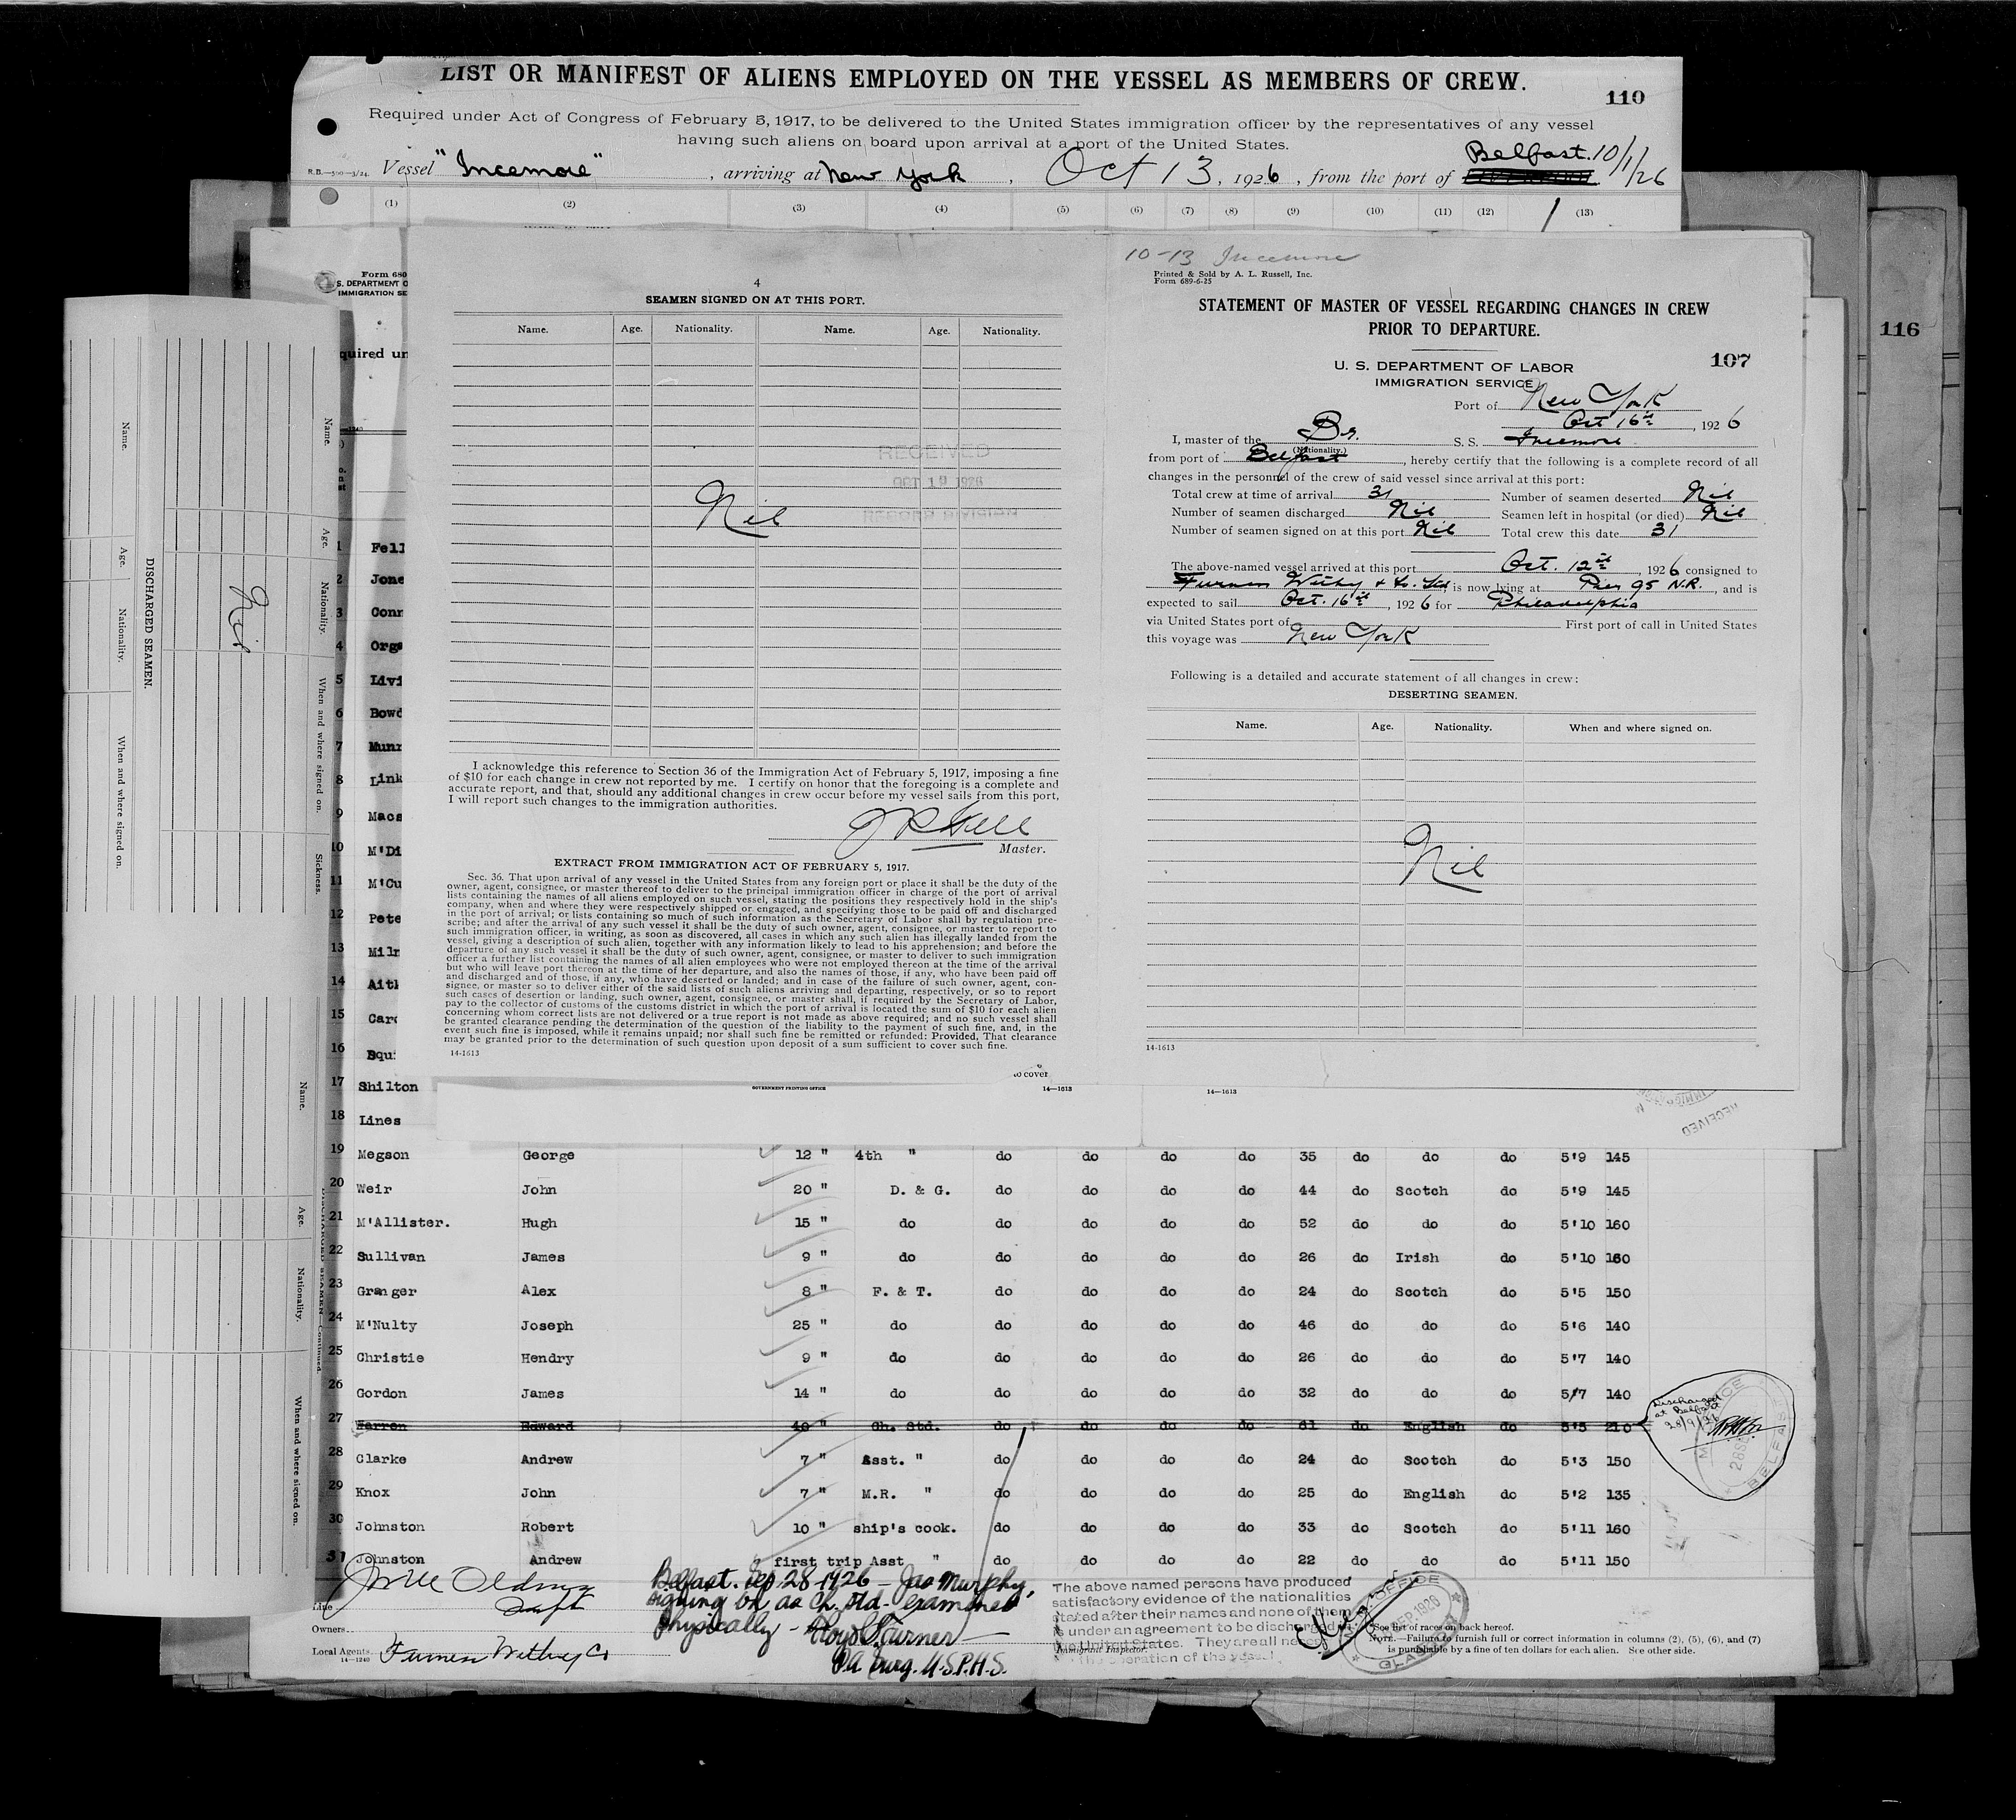 LIST OR MANIFEST OF ALIENS EMPLOYED ON THE VESSEL AS MEMBERS OF CREW.
110
Required under Act of Congress of February 5, 1917, to be delivered to the United States immigration officer by the representatives of any vessel
having such aliens on board upon arrival at a port of the United States.
R.B.—500—3/24. Vessel "Incemore", arriving at New York, Oct 13, 1926, from the port of Belfast. 10/1/26
(1) (2) (3) (4) (5) (6) (7) (8) (9) (10) (11) (12) (13)
116
Form 680
S. DEPARTMENT O
IMMIGRATION SE
quired un
4
SEAMEN SIGNED ON AT THIS PORT.
Name. Age. Nationality. Name. Age. Nationality.
RECEIVED
OCT 19 1926
RECORD DIVISION
Nil
I acknowledge this reference to Section 36 of the Immigration Act of February 5, 1917, imposing a fine
of $10 for each change in crew not reported by me. I certify on honor that the foregoing is a complete and
accurate report, and that, should any additional changes in crew occur before my vessel sails from this port,
I will report such changes to the immigration authorities.
Master.
EXTRACT FROM IMMIGRATION ACT OF FEBRUARY 5, 1917.
Sec. 36. That upon arrival of any vessel in the United States from any foreign port or place it shall be the duty of the
owner, agent, consignee, or master thereof to deliver to the principal immigration officer in charge of the port of arrival
lists containing the names of all aliens employed on such vessel, stating the positions they respectively hold in the ship's
company, when and where they were respectively shipped or engaged, and specifying those to be paid off and discharged
in the port of arrival; or lists containing so much of such information as the Secretary of Labor shall by regulation pre-
scribe; and after the arrival of any such vessel it shall be the duty of such owner, agent, consignee, or master to report to
such immigration officer, in writing, as soon as discovered, all cases in which any such alien has illegally landed from the
vessel, giving a description of such alien, together with any information likely to lead to his apprehension; and before the
departure of any such vessel it shall be the duty of such owner, agent, consignee, or master to deliver to such immigration
officer a further list containing the names of all alien employees who were not employed thereon at the time of the arrival
but who will leave port thereon at the time of her departure, and also the names of those, if any, who have been paid off
and discharged and of those, if any, who have deserted or landed; and in case of the failure of such owner, agent, con-
signee, or master so to deliver either of the said lists of such aliens arriving and departing, respectively, or so to report
such cases of desertion or landing, such owner, agent, consignee, or master shall, if required by the Secretary of Labor,
pay to the collector of customs of the customs district in which the port of arrival is located the sum of $10 for each alien
concerning whom correct lists are not delivered or a true report is not made as above required; and no such vessel shall
be granted clearance pending the determination of the question of the liability to the payment of such fine, and, in the
event such fine is imposed, while it remains unpaid; nor shall such fine be remitted or refunded: Provided, That clearance
may be granted prior to the determination of such question upon deposit of a sum sufficient to cover such fine.
14-1613
to cover
GOVERNMENT PRINTING OFFICE 14—1613
10-13 Incemore
Printed & Sold by A. L. Russell, Inc.
Form 689-6-25
STATEMENT OF MASTER OF VESSEL REGARDING CHANGES IN CREW
PRIOR TO DEPARTURE.
107
U. S. DEPARTMENT OF LABOR
IMMIGRATION SERVICE
Port of New York
Oct 16th, 1926
I, master of the Br. S. S. Incemore
(Nationality.)
from port of Belfast, hereby certify that the following is a complete record of all
changes in the personnel of the crew of said vessel since arrival at this port:
Total crew at time of arrival 31 Number of seamen deserted Nil
Number of seamen discharged Nil Seamen left in hospital (or died) Nil
Number of seamen signed on at this port Nil Total crew this date 31
The above-named vessel arrived at this port Oct. 12th, 1926 consigned to
Furness Withy & Co. Ltd, is now lying at Pier 95 N.R., and is
expected to sail Oct. 16th, 1926 for Philadelphia
via United States port of First port of call in United States
this voyage was New York
Following is a detailed and accurate statement of all changes in crew:
DESERTING SEAMEN.
Name. Age. Nationality. When and where signed on.
Nil
14-1613
14—1613
RECEIVED
Name. Age. Nationality. When and where signed on.
DISCHARGED SEAMEN.
Name. Age. Nationality. When and where signed on. Sickness.
Nil
Name. Age. Nationality. When and where signed on.
DISCHARGED SEAMEN—Continued.
1 Fell
2 Jone
3 Conn
4 Orgs
5 Livi
6 Bowd
7 Munr
8 Link
9 Macs
10 M'Di
11 M'Cu
12 Pete
13 Miln
14 Aitk
15 Card
16 Squi
17 Shilton
18 Lines
19 Megson George 12 " 4th " do do do do 35 do do do 5'9 145
20 Weir John 20 " D. & G. do do do do 44 do Scotch do 5'9 145
21 M'Allister. Hugh 15 " do do do do do 52 do do do 5'10 160
22 Sullivan James 9 " do do do do do 26 do Irish do 5'10 160
23 Granger Alex 8 " F. & T. do do do do 24 do Scotch do 5'5 150
24 M'Nulty Joseph 25 " do do do do do 46 do do do 5'6 140
25 Christie Hendry 9 " do do do do do 26 do do do 5'7 140
26 Gordon James 14 " do do do do do 32 do do do 5'7 140
27 Warren Edward 40 " Ch. Std. do do do do 61 do English do 5'5 210
Discharged
at Belfast
28/9/26
28SEP
BELFAST
28 Clarke Andrew 7 " Asst. " do do do do 24 do Scotch do 5'3 150
29 Knox John 7 " M.R. " do do do do 25 do English do 5'2 135
30 Johnston Robert 10 " ship's cook. do do do do 33 do Scotch do 5'11 160
31 Johnston Andrew first trip Asst " do do do do 22 do do do 5'11 150
Belfast. Sep 28-1926 — Jas Murphy,
signing on as Ch. Std. examined
physically —
Surg. U.S.P.H.S.
Line
Owners
Local Agents Furness Withy Co
14—1240
The above named persons have produced
satisfactory evidence of the nationalities
stated after their names and none of them
is under an agreement to be discharged in
the United States. They are all
the operation of the vessel
Immigrant Inspector.
OFFICE
SEP. 1926
GLASGOW
See list of races on back hereof.
NOTE.—Failure to furnish full or correct information in columns (2), (5), (6), and (7)
is punishable by a fine of ten dollars for each alien. See other side.